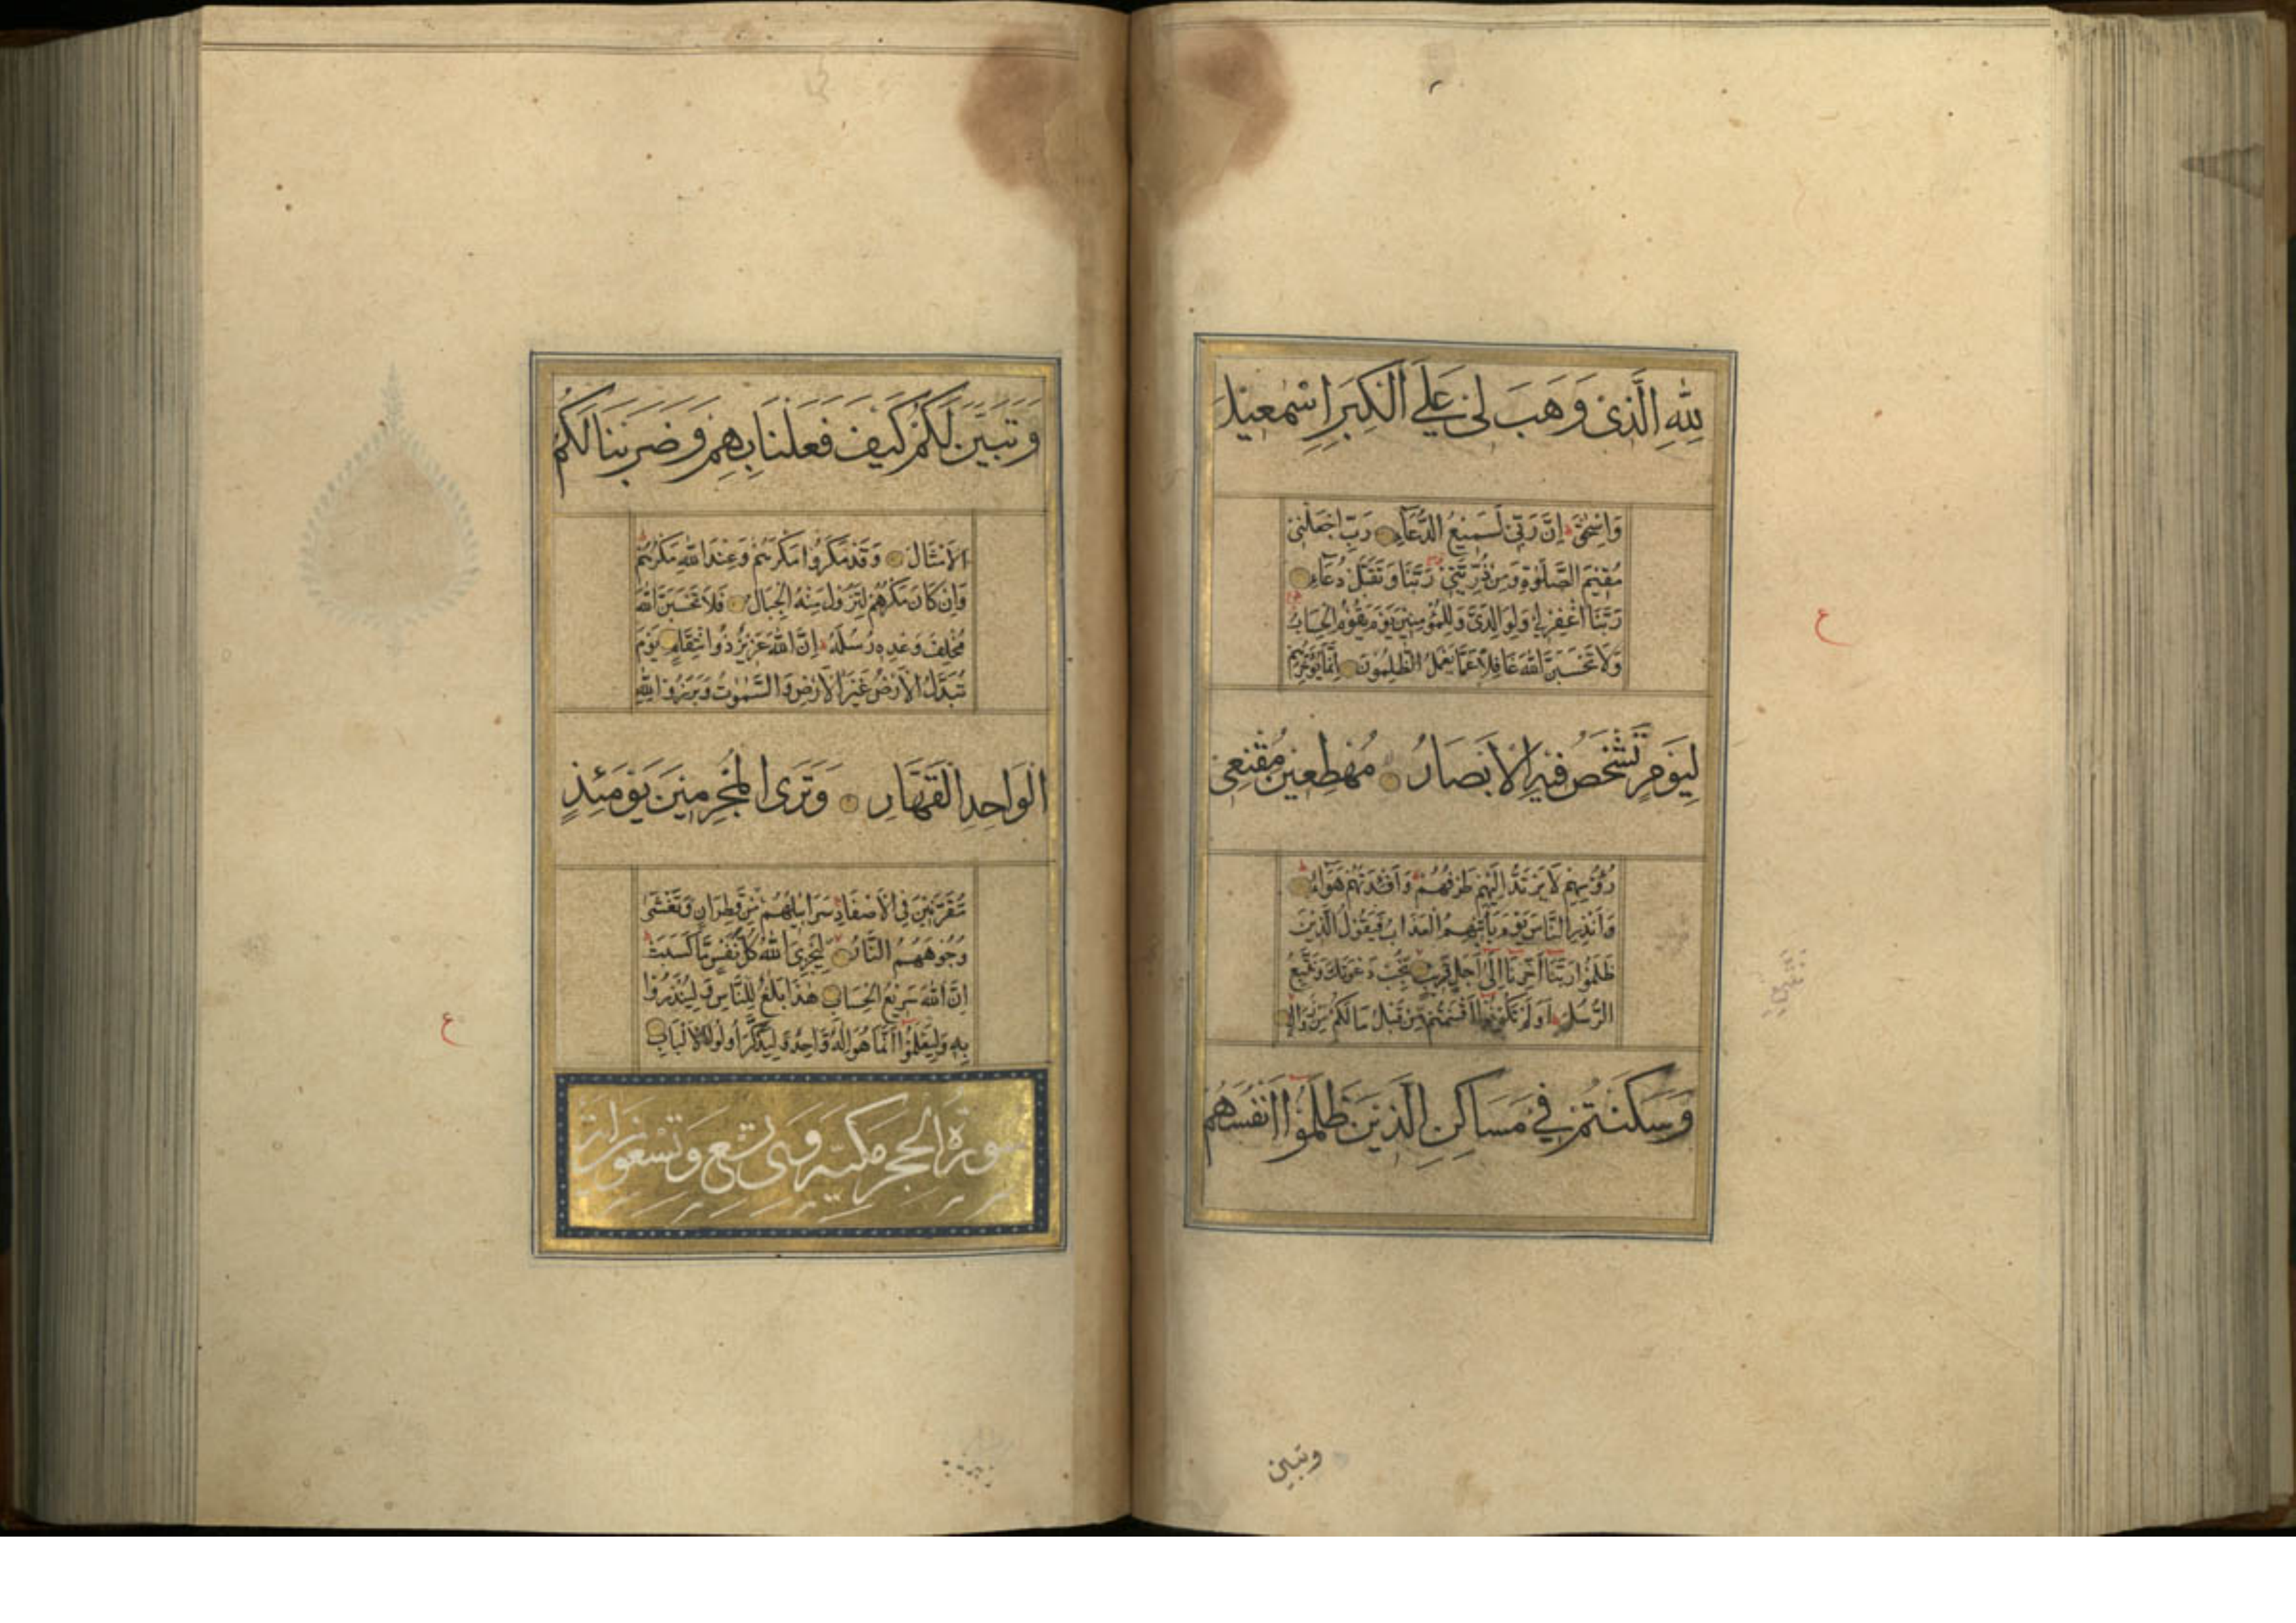 لِلّٰهِ الَّذِی وَهَبَ لِی عَلَی الْکِبَرِ اِسْمٰعِیْلَ
وَاِسْحٰقَ اِنَّ رَبِّی لَسَمِیْعُ الدُّعَآءِ رَبِّ اجْعَلْنِیْ
مُقِیْمَ الصَّلٰوةِ وَمِنْ ذُرِّیَّتِیْ رَبَّنَا وَتَقَبَّلْ دُعَآءِ
رَبَّنَا اغْفِرْ لِیْ وَلِوَالِدَیَّ وَلِلْمُؤْمِنِیْنَ یَوْمَ یَقُوْمُ الْحِسَابُ
وَلَا تَحْسَبَنَّ اللّٰهَ غَافِلًا عَمَّا یَعْمَلُ الظّٰلِمُوْنَ اِنَّمَا یُؤَخِّرُهُمْ
لِیَوْمٍ تَشْخَصُ فِیْهِ الْاَبْصَارُ مُهْطِعِیْنَ مُقْنِعِیْ
رُؤُسِهِمْ لَا یَرْتَدُّ اِلَیْهِمْ طَرْفُهُمْ وَاَفْئِدَتُهُمْ هَوَآءٌ
وَاَنْذِرِ النَّاسَ یَوْمَ یَاْتِیْهِمُ الْعَذَابُ فَیَقُوْلُ الَّذِیْنَ
ظَلَمُوْا رَبَّنَا اَخِّرْنَا اِلٰی اَجَلٍ قَرِیْبٍ نُجِبْ دَعْوَتَكَ وَنَتَّبِعِ
الرُّسُلَ اَوَلَمْ تَكُوْنُوْا اَقْسَمْتُمْ مِنْ قَبْلُ مَا لَكُمْ مِنْ زَوَالٍ
وَسَكَنْتُمْ فِیْ مَسَاكِنِ الَّذِیْنَ ظَلَمُوْا اَنْفُسَهُمْ
وتبین
ع
وَتَبَیَّنَ لَكُمْ كَیْفَ فَعَلْنَا بِهِمْ وَضَرَبْنَا لَكُمُ
الْاَمْثَالَ وَقَدْ مَكَرُوْا مَكْرَهُمْ وَعِنْدَ اللّٰهِ مَكْرُهُمْ
وَاِنْ كَانَ مَكْرُهُمْ لِتَزُوْلَ مِنْهُ الْجِبَالُ فَلَا تَحْسَبَنَّ اللّٰهَ
مُخْلِفَ وَعْدِهٖ رُسُلَهُ اِنَّ اللّٰهَ عَزِیْزٌ ذُو انْتِقَامٍ یَوْمَ
تُبَدَّلُ الْاَرْضُ غَیْرَ الْاَرْضِ وَالسَّمٰوٰتُ وَبَرَزُوْا لِلّٰهِ
الْوَاحِدِ الْقَهَّارِ وَتَرَی الْمُجْرِمِیْنَ یَوْمَئِذٍ
مُقَرَّنِیْنَ فِی الْاَصْفَادِ سَرَابِیْلُهُمْ مِنْ قَطِرَانٍ وَتَغْشٰی
وُجُوْهَهُمُ النَّارُ لِیَجْزِیَ اللّٰهُ كُلَّ نَفْسٍ مَا كَسَبَتْ
اِنَّ اللّٰهَ سَرِیْعُ الْحِسَابِ هٰذَا بَلٰغٌ لِلنَّاسِ وَلِیُنْذَرُوْا
بِهٖ وَلِیَعْلَمُوْا اَنَّمَا هُوَ اِلٰهٌ وَاحِدٌ وَلِیَذَّكَّرَ اُولُوا الْاَلْبَابِ
سورة الحجر مكیة وهی تسع وتسعون ایة
ع